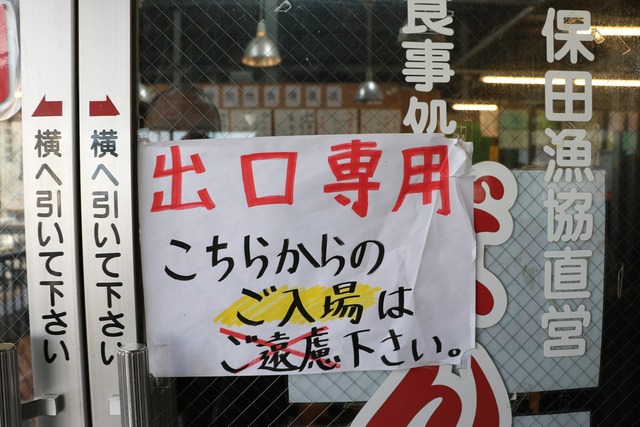 横へ引いて下さい
横へ引いて下さい
出口専用
こちらからの
ご入場は
ご遠慮下さい。
食事処
保田漁協直営